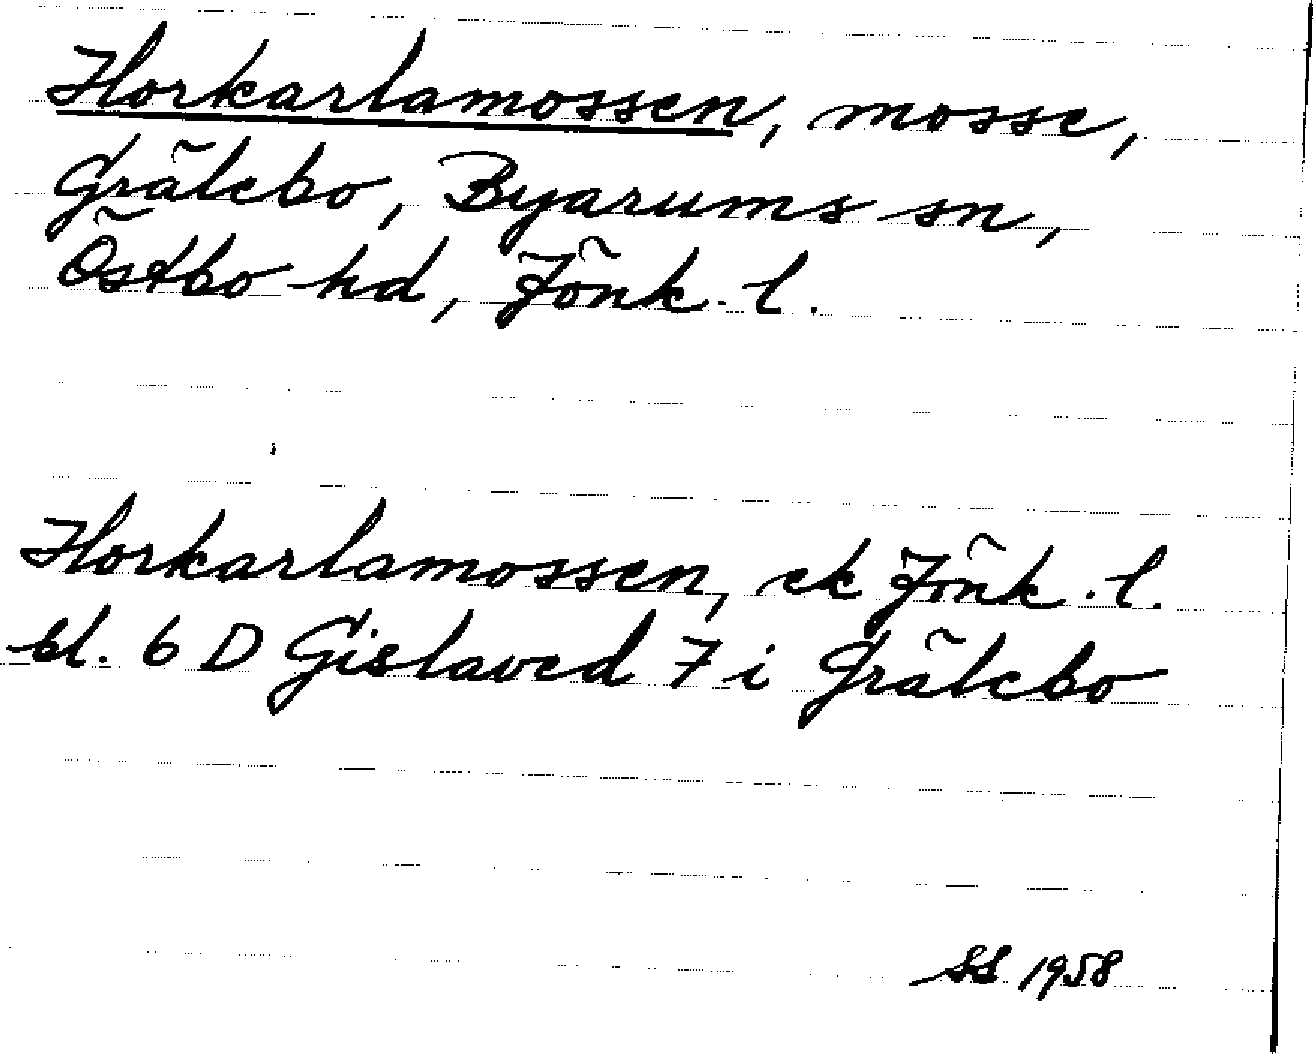 Horkarlamossen, mosse,
Grälebo, Byarums sn,
Östbo hd, Jönk. l.
Horkarlamossen, ek Jönk. l.
bl. 6 D Gislaved 7 i Grälebo
SS 1958